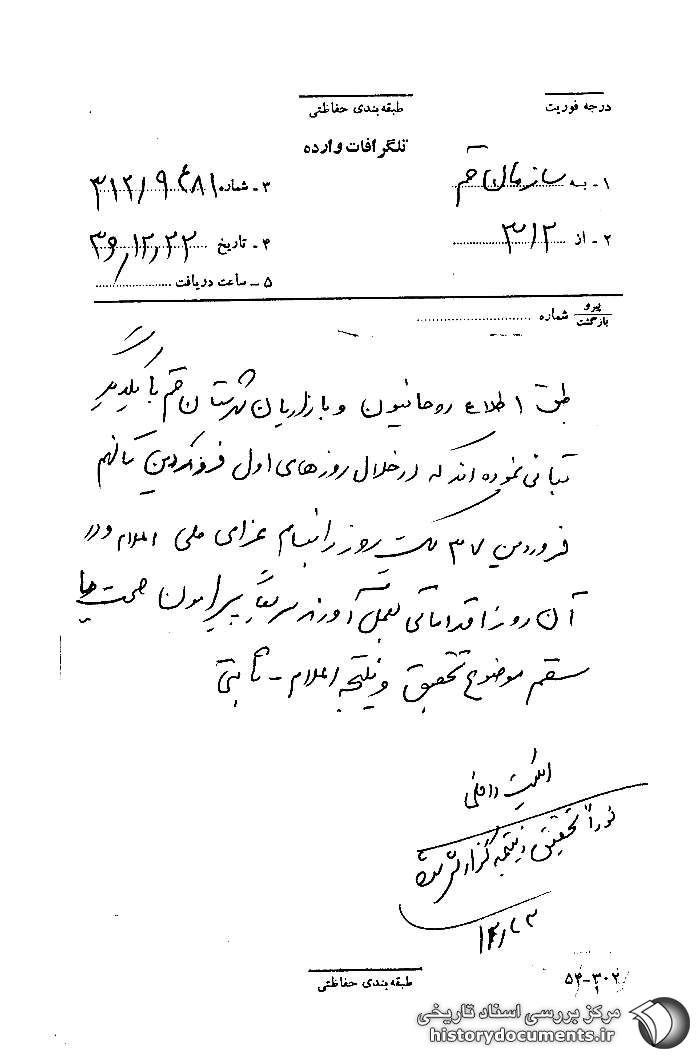 درجه فوریت
طبقه‌بندی حفاظتی
تلگرافات وارده
۱ - به سازمان قم
۳ - شماره ۳۱۲/۹۴۸۱
۲ - از ۳۱۲
۴ - تاریخ ۳۶/۱۲/۲۲
۵ - ساعت دریافت
پیرو
بازگشت
شماره
طبق اطلاع روحانیون و بازاریان شهرستان قم با یکدیگر
تبانی نموده‌اند که در خلال روزهای اول فروردین تا نهم
فروردین ۳۷ یک روز را بنام عزای ملی اعلام و در
آن روز اقداماتی بعمل آورند سریعاً پیرامون صحت یا
سقم موضوع تحقیق و نتیجه اعلام - ثابتی
امنیت داخلی
فوراً تحقیق و نتیجه گزارش شود
طبقه‌بندی حفاظتی
۵۴-۳۰۲
مرکز بررسی اسناد تاریخی
historydocuments.ir